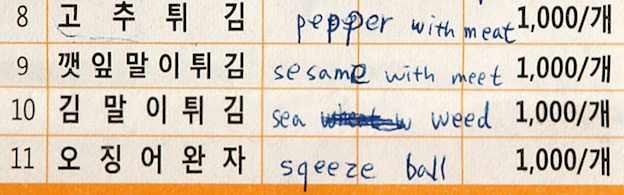 8 고추튀김 pepper with meat 1,000/개
9 깻잎말이튀김 sesame with meet 1,000/개
10 김말이튀김 sea weed 1,000/개
11 오징어완자 sqeeze ball 1,000/개